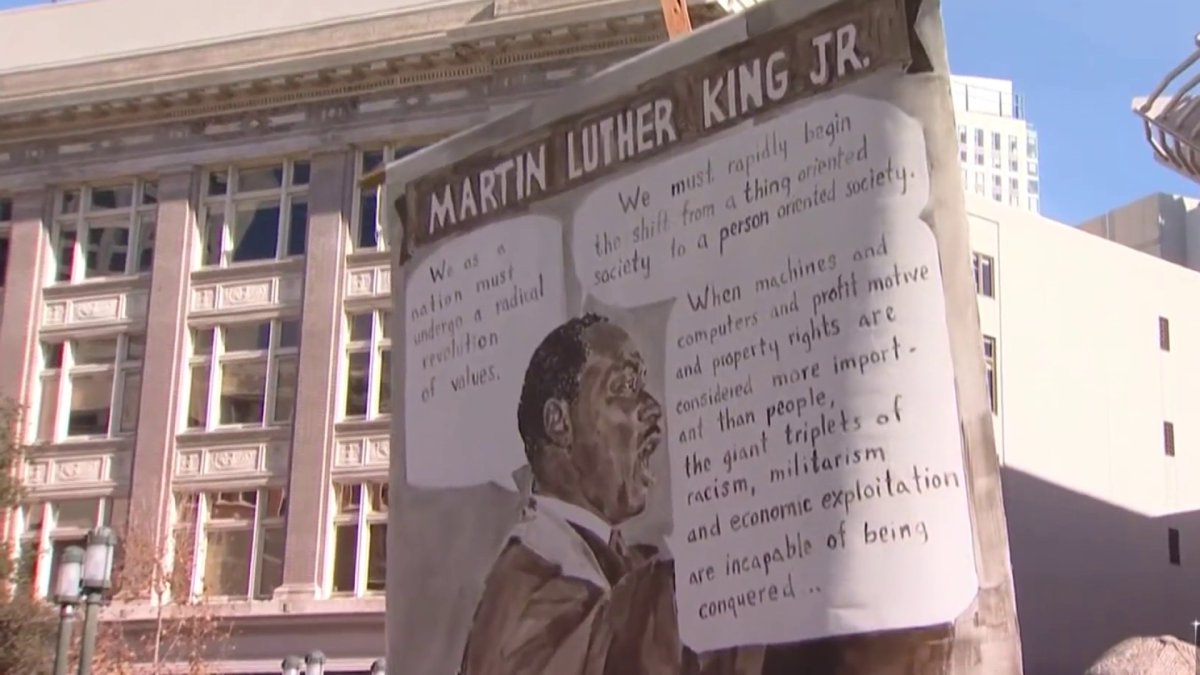 MARTIN LUTHER KING JR.
We as a
nation must
undergo a radical
revolution
of values.
We must rapidly begin
the shift from a thing oriented
society to a person oriented society.
When machines and
computers and profit motive
and property rights are
considered more import-
ant than people,
the giant triplets of
racism, militarism
and economic exploitation
are incapable of being
conquered ..